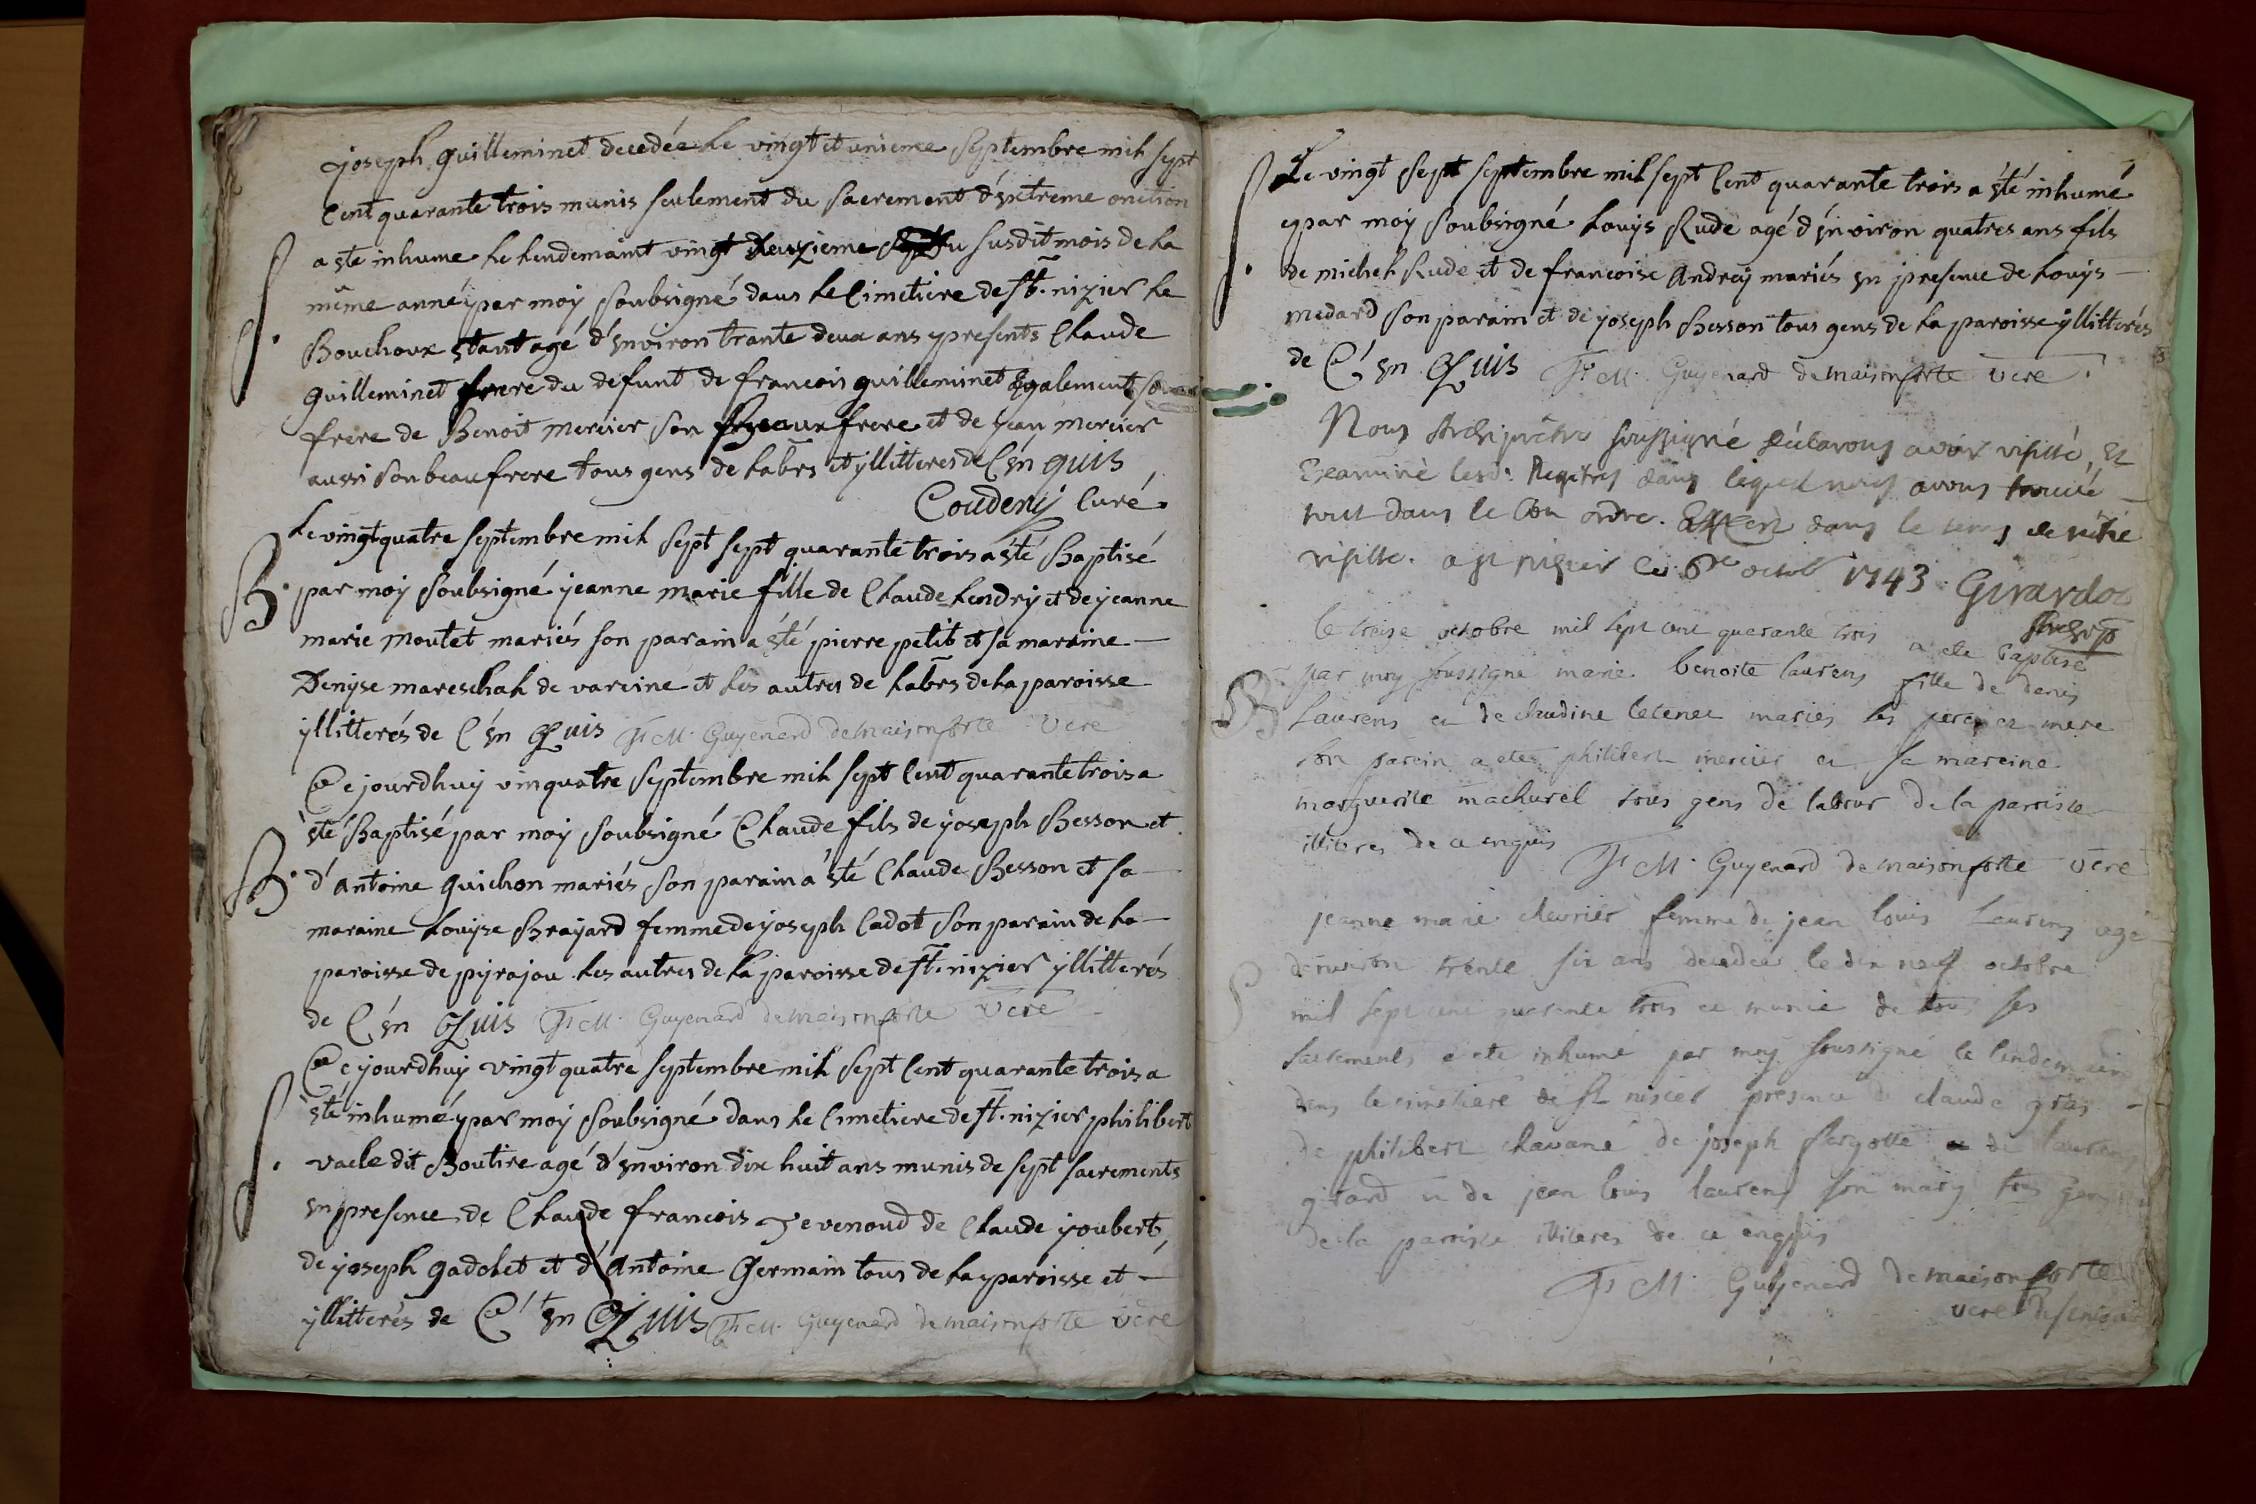 joseph guilleminet decedée le vingt et unieme septembre mil sept
Cent quarante trois munis seulement du sacrement d'extreme onction
S.
a ste inhume le lendemaint vingt deuxieme du susdit mois de la
même année par moy soubsigné dans le Cimetiere de st. nizier le
Bouchoux etant agé d'environ trante deux ans presents Claude
guilleminet frere du defunt de francois guilleminet Egalement son
frere de Benoit mercier son beaux frere et de jean mercier
aussi son beau frere tous gens de labrs et yllitteres de C'en quis
Coudery Curé.
Le vingt quatre septembre mil sept sept quarante trois a sté Baptisé
B.
par moy soubsigné jeanne marie fille de Claude hendry et de jeanne
marie moutet mariés son parain a été pierre petit et sa maraine —
Denyse mareschal de vareine et les autres de labrs de la paroisse
yllitterés de C'en Quis F. M. Guyenard de maisonforte vcre
Ce jourdhuy vin quatre septembre mil sept Cent quarante trois a
sté Baptisé par moy soubsigné Claude fils de yoseph Besson et
B.
d'antoine guichon mariés son parain a sté Claude Besson et sa —
maraine Louyse Brayard femme de yoseph Cadot son parain de la —
paroisse de pyrajou les autres de la paroisse de st. nizier yllitterés
de C'en Quis F. M. Guyenard de maisonforte vcre
Ce jourdhuy vingt quatre septembre mil sept Cent quarante trois a
S.
sté inhumé par moy soubsigné dans le Cimetiere de st. nizier philibert
vacle dit Boutire agé d'environ dix huit ans munis de sept sacrements
en presence de Claude francois Tevenoud de Claude joubert,
de joseph gadolet et d'Antoine Germain tous de la paroisse et —
yllitterés de Ce en Quis F. M. Guyenard de maisonforte vcre
S.
Le vingt sept septembre mil sept Cent quarante trois a sté inhumé
par moy soubsigné Louys Rude agé d'environ quatres ans fils
de michel Rude et de francoise Andrey mariés en presence de Louys —
medard son parain et de yoseph Besson tous gens de la paroisse yllitterés
de C'en Quis F. M. Guyenard de maisonforte vcre.
Nous Archiprêtre soussigné déclarons avoir visitté, Et
Examiné lesd. Regitres dans lequel nous avons trouvé —
tout dans le bon ordre. dans le tems de nôtre
visitte. a st nizier ce 6e octob 1743. Girardot
Archip
le treize octobre mil sept cent quarante trois a ete baptisé
B
par moy soussigne marie benoite laurens fille de denis
Laurens et de claudine mariés ses pere et mere
son parein a ete philibert mercier et sa mareine
marguerite machurel tous gens de labour de la paroisse
illiteres de ce enquis F. M. Guyenard de maisonforte vcre
jeanne marie chevrier femme de jean louis Laurens agé
d'environ trente six ans decedée le dix neuf octobre
S
mil sept cent quarante trois et munie de tous ses
sacrements a ete inhumé par moy soussigné le lendemain
dans le cimetiere de st nisier presence de claude gras —
de philibert chavane de joseph fargotte et de laurens
girard et de jean louis laurens son mary tous gens
de la paroisse illiteres de ce enquis
F. M. Guyenard de maisonforte
vcre